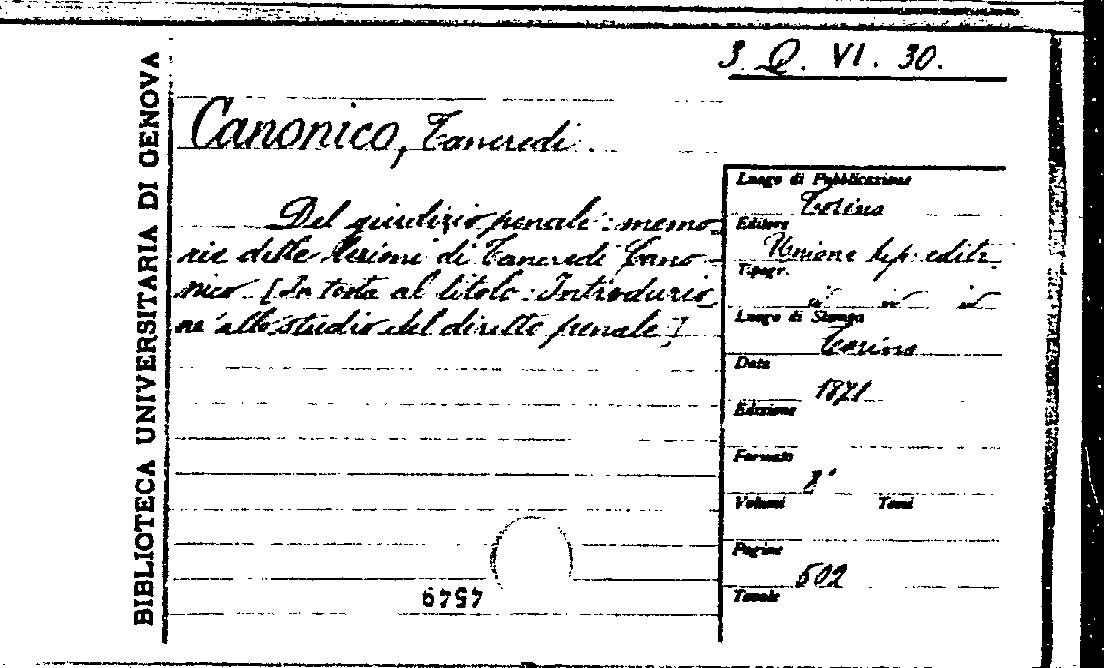 3. Q. VI. 30.
BIBLIOTECA UNIVERSITARIA DI GENOVA
Canonico, Tancredi.
Del giudizio penale: memo-
rie delle lezioni di Tancredi Cano-
nico. [In testa al titolo: Introduzio
ne allo studio del diritto penale]
Luogo di Pubblicazione
Torino
Editore
Unione tip. editr.
Tipogr.
id id id
Luogo di Stampa
Torino
Data
1871
Edizione
Formato
8°
Volumi Tomi
Pagine
502
Tavole
4579